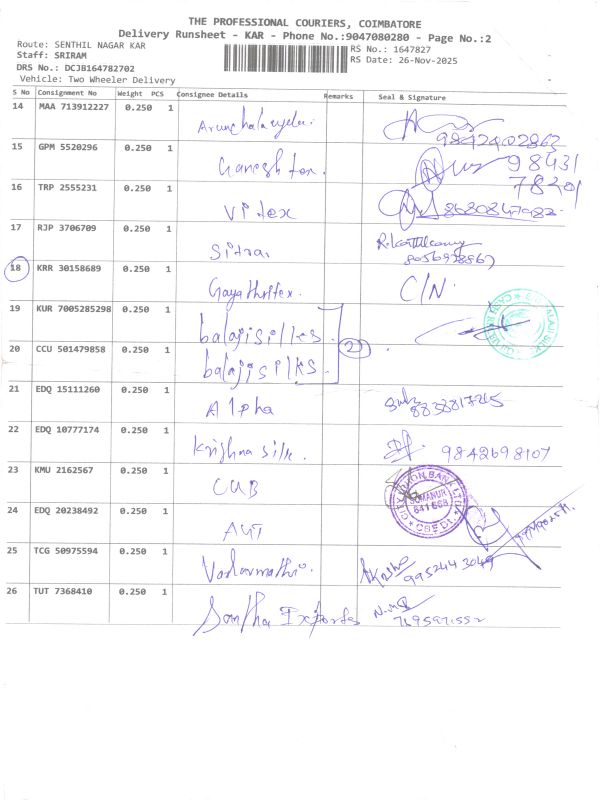 THE PROFESSIONAL COURIERS, COIMBATORE
Delivery Runsheet - KAR - Phone No.:9047080280 - Page No.:2
Route: SENTHIL NAGAR KAR RS No.: 1647827
Staff: SRIRAM RS Date: 26-Nov-2025
DRS No.: DCJB164782702
Vehicle: Two Wheeler Delivery
S No Consignment No Weight PCS Consignee Details Remarks Seal & Signature
14 MAA 713912227 0.250 1 9842402863
15 GPM 5520296 0.250 1 Ganesh tex. 98431
78201
16 TRP 2555231 0.250 1 Vitex
17 RJP 3706709 0.250 1 Sitra.
18 KRR 30158689 0.250 1 Gayathritex. C/N.
19 KUR 7005285298 0.250 1 balajisilks.
20 CCU 501479858 0.250 1 balajisilks. 2
21 EDQ 15111260 0.250 1 Alpha
22 EDQ 10777174 0.250 1 Krishna Silk. 9842698107
23 KMU 2162567 0.250 1 CUB CITY UNION BANK LTD. SOMANUR CBE DT.
24 EDQ 20238492 0.250 1
25 TCG 50975594 0.250 1 9952443049
26 TUT 7368410 0.250 1